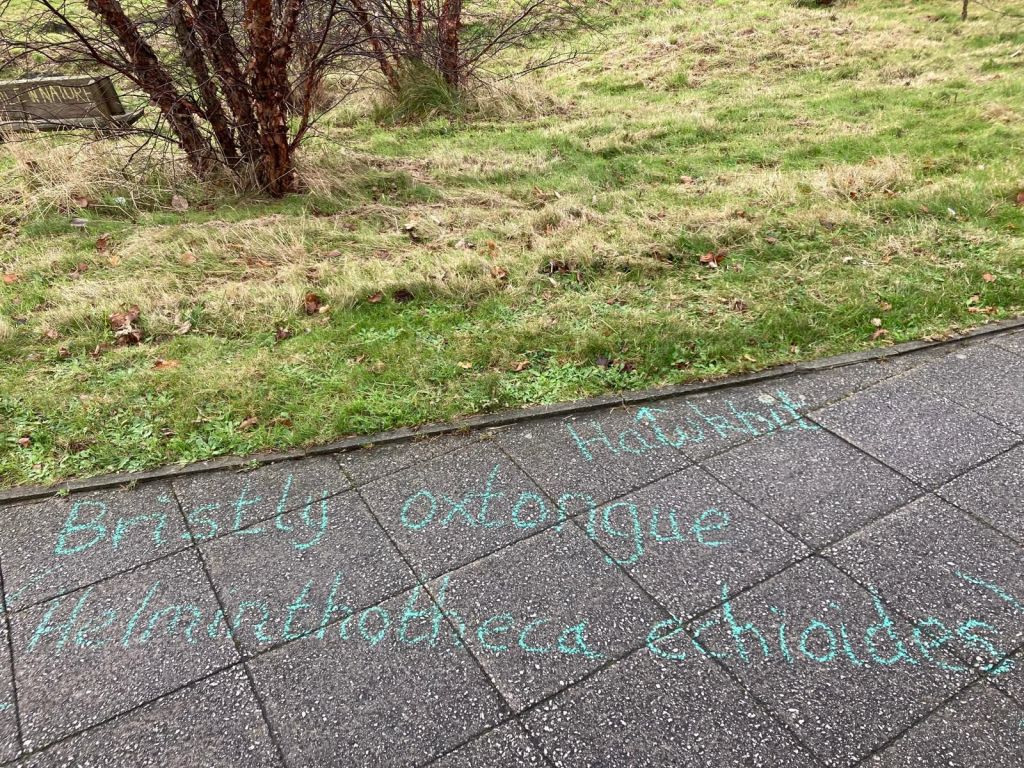 NATURE
Hawkbit
Bristly oxtongue
Helminthotheca echioides